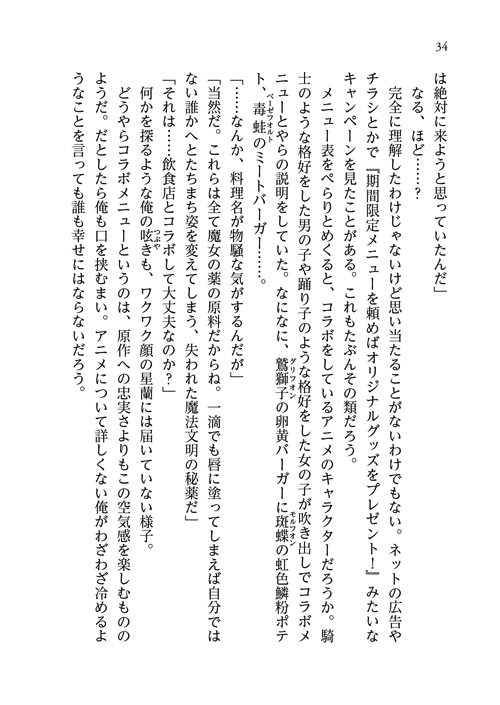 34
は絶対に来ようと思っていたんだ」
なる、ほど……？
完全に理解したわけじゃないけど思い当たることがないわけでもない。ネットの広告や
チラシとかで『期間限定メニューを頼めばオリジナルグッズをプレゼント！』みたいな
キャンペーンを見たことがある。これもたぶんその類だろう。
メニュー表をぺらりとめくると、コラボをしているアニメのキャラクターだろうか。騎
士のような格好をした男の子や踊り子のような格好をした女の子が吹き出しでコラボメ
ニューとやらの説明をしていた。なになに、鷲獅子グリフォンの卵黄バーガーに斑蝶モルフォンの虹色鱗粉ポテ
ト、毒蛙ベーゼフォルトのミートバーガー……。
「……なんか、料理名が物騒な気がするんだが」
「当然だ。これらは全て魔女の薬の原料だからね。一滴でも唇に塗ってしまえば自分では
ない誰かへとたちまち姿を変えてしまう、失われた魔法文明の秘薬だ」
「それは……飲食店とコラボして大丈夫なのか？」
何かを探るような俺の呟つぶやきも、ワクワク顔の星蘭には届いていない様子。
どうやらコラボメニューというのは、原作への忠実さよりもこの空気感を楽しむものの
ようだ。だとしたら俺も口を挟むまい。アニメについて詳しくない俺がわざわざ冷めるよ
うなことを言っても誰も幸せにはならないだろう。